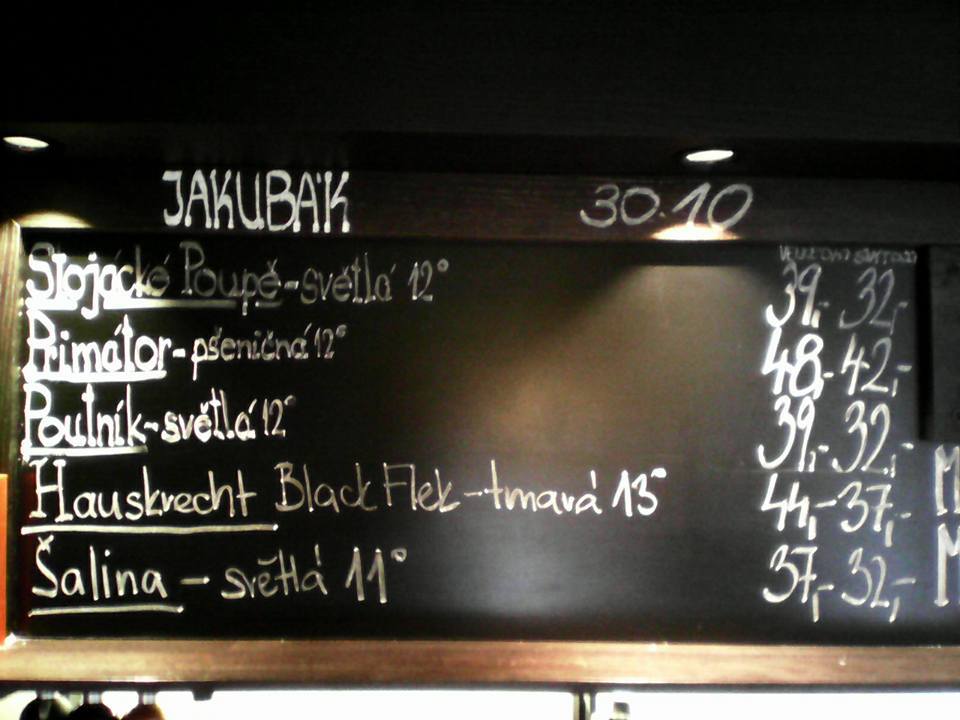 JAKUBÁK 30.10
Stojácké Poupě - světlá 12° 39,- 32,-
Primátor - pšeničná 12° 48,- 42,-
Poutník - světlá 12° 39,- 32,-
Hauskrecht Black Flek - tmavá 13° 44,- 37,-
Šalina - světlá 11° 37,- 32,-
M
M